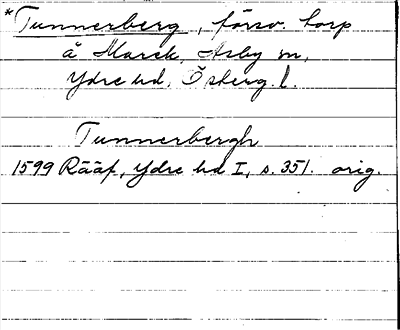 *Tunnerberg, försv. torp
å Marek, Asby sn,
Ydre hd, Österg. l.
Tunnerbergh
1599 Rääf, Ydre hd I, s. 351. orig.